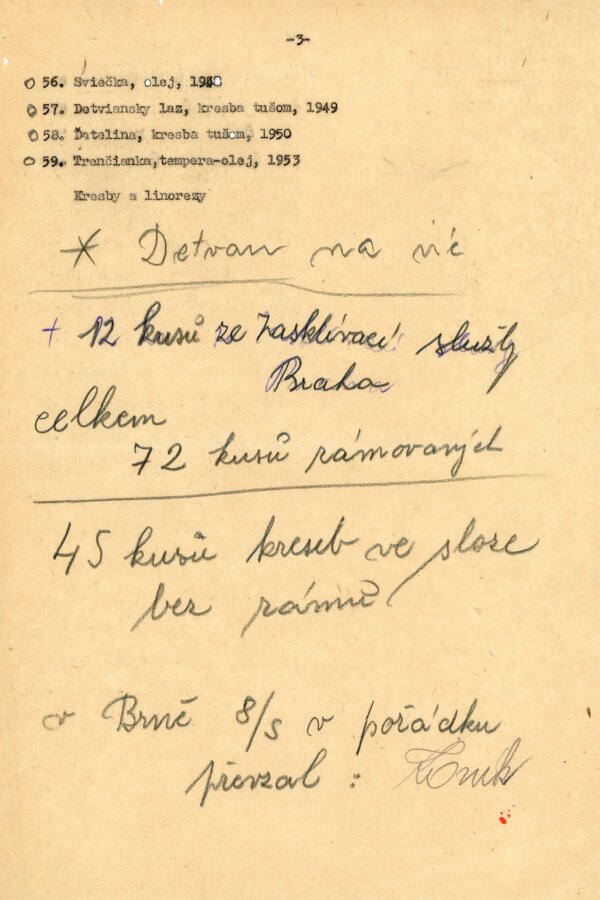 -3-
56. Sviečka, olej, 1948
57. Detviansky laz, kresba tušom, 1949
58. Ďatelina, kresba tušom, 1950
59. Trenčianka,tempera-olej, 1953
Kresby a linorezy
* Detvan na
+ 12 kusů ze Zasklívací služby
Praha
celkem
72 kusů rámovaných
45 kusů kreseb ve sloze
bez rámů
v Brně 8/5 v pořádku
převzal :